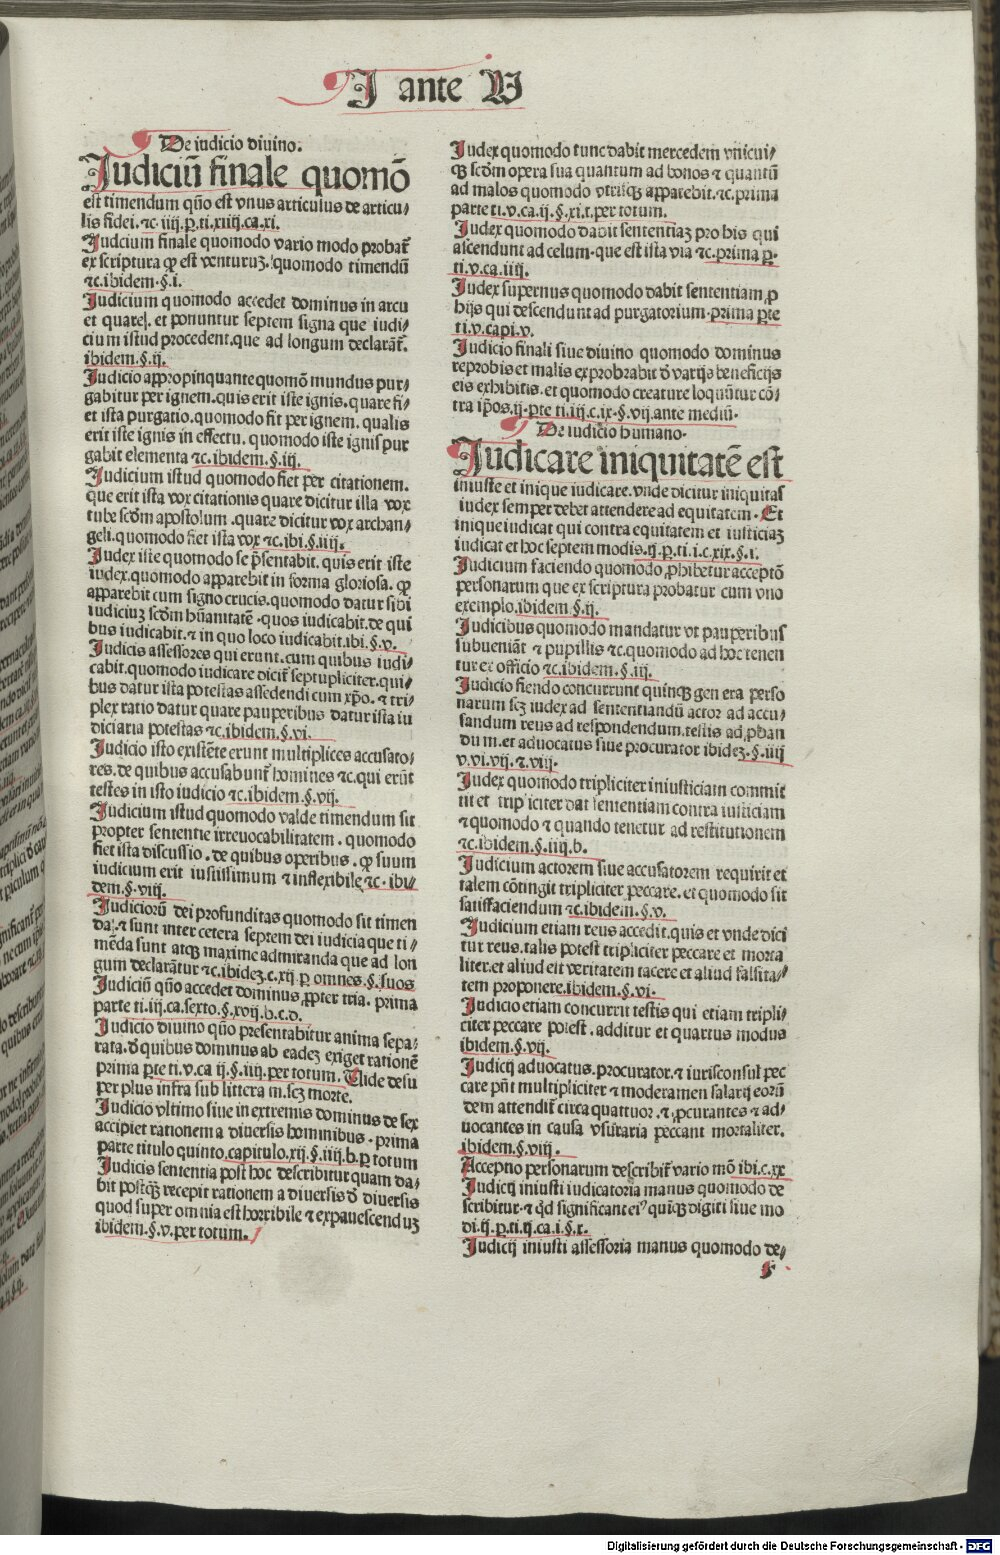 I ante V
De iudicio diuino.
Judiciū finale quomō
est timendum qño est vnus articulus de articu⸗
lis fidei. ⁊c. iiij. p. ti. xiiij. ca. xi.
Judcium finale quomodo vario modo probat̄
ex scriptura ꝙ est venturuꝫ. quomodo timendū
⁊c. ibidem. §. i.
Judicium quomodo accedet dominus in arcu
et quare. et ponuntur septem signa que iudi⸗
cium istud procedent. que ad longum declarāt̄.
ibidem. §. ij.
Judicio appropinquante quomō mundus pur⸗
gabitur per ignem. quis erit iste ignis. quare fi⸗
et ista purgatio. quomodo fit per ignem. qualis
erit iste ignis in effectu. quomodo iste ignis pur
gabit elementa ⁊c. ibidem. §. iij.
Judicium istud quomodo fiet per citationem.
que erit ista vox citationis quare dicitur illa vox
tube scđm apostolum. quare dicitur vox archan⸗
geli. quomodo fiet ista vox ⁊c. ibi. §. iiij.
Judex iste quomodo se p̄sentabit. quis erit iste
iudex. quomodo apparebit in forma gloriosa. ꝙ
apparebit cum signo crucis. quomodo datur sibi
iudiciuꝫ scđm hūanitatē. quos iudicabit. de qui
bus iudicabit. ⁊ in quo loco iudicabit. ibi. §. v.
Judicis assessores qui erunt. cum quibus iudi⸗
cabit. quomodo iudicare dicit̄ septupliciter. qui⸗
bus datur ista potestas assedendi cum xp̄o. ⁊ tri⸗
plex ratio datur quare pauperibus datur ista iu
diciaria potestas ⁊c. ibidem. §. vi.
Judicio isto existēte erunt multiplices accusato⸗
res. de quibus accusabunt̄ homines ⁊c. qui erūt
testes in isto iudicio ⁊c. ibidem. §. vij.
Judicium istud quomodo valde timendum sit
propter sententie irreuocabilitatem. quomodo
fiet ista discussio. de quibus operibus. ꝙ suum
iudicium erit iustissimum ⁊ inflexibile ⁊c. ibi⸗
dem. §. viij.
Judiciorū dei profunditas quomodo sit timen
da. ⁊ sunt inter cetera septem dei iudicia que ti⸗
mēda sunt atqꝫ maxime admiranda que ad lon
gum declarātur ⁊c. ibideꝫ. c. xij. p omnes. §. suos
Judiciū qūo accedet dominus ꝓpter tria. prima
parte ti. iij. ca. sexto. §. xvij. b. c. d.
Judicio diuino qūo presentabitur anima sepa⸗
rata. đ quibus dominus ab eadeꝫ exiget rationē
prima p̄te ti. v. ca ij. §. iij. per totum. Vide desu
per plus infra sub littera m. scꝫ morte.
Judicio vltimo siue in extremis dominus de sex
accipiet rationem a diuersis hominibus. prima
parte titulo quinto. capitulo. xij. §. iiij. b. p totum
Judicis sententia post hoc describitur quam da⸗
bit postqꝫ recepit rationem a diuersis đ diuersis
quod super omnia est horribile ⁊ expauescenduꝫ
ibidem. §. v. per totum.
Judex quomodo tunc dabit mercedem vnicui⸗
qꝫ scđm opera sua quantum ad bonos ⁊ quantū
ad malos quomodo vtrisqꝫ apparebit. ⁊c. prima
parte ti. v. ca. ij. §. xi. t. per totum.
Judex quomodo dabit sententiaꝫ pro his qui
ascendunt ad celum. que est ista via ⁊c. prima p.
ti. v. ca. iiij.
Judex supernus quomodo dabit sententiam ꝓ
hijs qui descendunt ad purgatorium. prima p̄te
ti. v. capi. v.
Judicio finali siue diuino quomodo dominus
reprobis et malis exprobrabit đ varijs beneficijs
eis exhibitis. et quomodo creature loquūtur cō⸗
tra ip̄os. ij. pte ti. iij. c. ix. §. vij. ante mediū.
De iudicio humano.
Judicare iniquitatē est
iniuste et inique iudicare. vnde dicitur iniquitas
iudex semper debet attendere ad equitatem. Et
inique iudicat qui contra equitatem et iusticiaꝫ
iudicat et hoc septem modis. ij. p. ti. i. c. xix. §. i.
Judicium faciendo quomodo ꝓhibetur acceptō
personarum que ex scriptura probatur cum vno
exemplo. ibidem. §. ij.
Judicibus quomodo mandatur vt pauperibus
subueniāt ⁊ pupillis ⁊c. quomodo ad hoc tenen
tur ex officio ⁊c. ibidem. §. iij.
Judicio fiendo concurrunt quinqꝫ gen era perso
narum scꝫ iudex ad sententiandū actor ad accu⸗
sandum reus ad respondendum. testis ad ꝓban
du m. et aduocatus siue procurator ibideꝫ. §. iiij
v. vi. vij. ⁊. viij.
Judex quomodo tripliciter iniusticiam commit
tit et tripliciter dat sententiam contra iusticiam
⁊ quomodo ⁊ quando tenetur ad restitutionem
⁊c. ibidem. §. iiij. b.
Judicium actorem siue accusatorem requirit et
talem cōtingit tripliciter peccare. et quomodo sit
satisfaciendum ⁊c. ibidem. §. v.
Judicium etiam reus accedit. quis et vnde dici
tur reus. talis potest tripliciter peccare et morta
liter. et aliud est veritatem tacere et aliud falsita⸗
tem proponere. ibidem. §. vi.
Judicio etiam concurrit testis qui etiam tripli⸗
citer peccare potest. additur et quartus modus
ibidem. §. vij.
Judicij aduocatus. procurator. ⁊ iurisconsul pec
care pn̄t multipliciter ⁊ moderamen salarij eorū
dem attendit̄ circa quattuor. ⁊ ꝓcurantes ⁊ ad⸗
uocantes in causa vsuraria peccant mortaliter.
ibidem. §. viij.
Acceptio personarum describit̄ vario mō ibi. c. xx
Judicij iniusti iudicatoria manus quomodo de
scribitur. ⁊ qđ significant ei⁹ quiqꝫ digiti siue mo
di. ij. p. ti. ij. ca. i. §. x.
Judicij iniusti assessoria manus quomodo de⸗
f
Digitalisierung gefördert durch die Deutsche Forschungsgemeinschaft - DFG